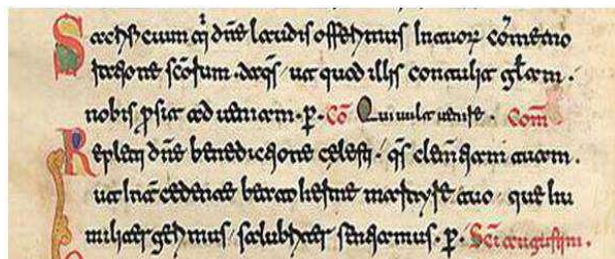 Sacrificium q̄s dn̄e laudis offerimus In tuoꝝ cōmemo
racione sc̄orum. da q̄s ut quod illis contulit gl̄am.
nobis ꝓsit ad ueniam. p. Cō Qui uult uenire. Com̄
Repleti dn̄e benedictione celesti. q̄s clementiam tuam.
ut Intercedente beato martyre tuo. que hu
militer gerimus. salubriter sentiamus. p. Sc̄i augustini.